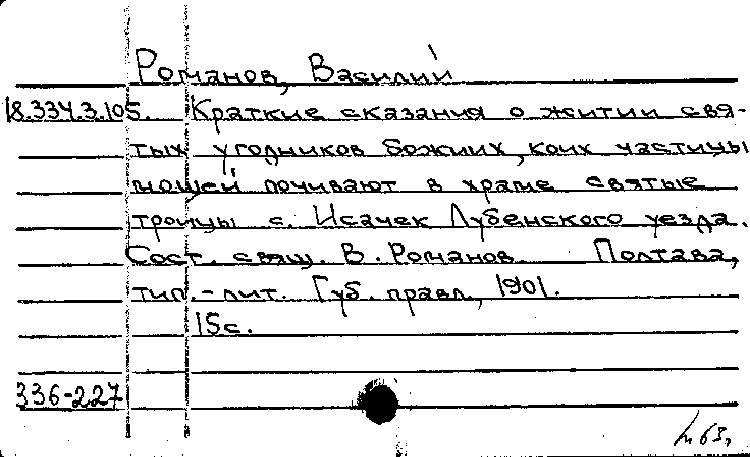 Романов, Василий
18.334.3.105. Краткие сказания о житии свя-
тых угодников божиих, коих частицы
мощей почивают в храме святые
троицы с. Исачек Лубенского уезда.
Сост. свящ. В. Романов. Полтава,
тип.-лит. Губ. правл., 1901.
15с.
336-227